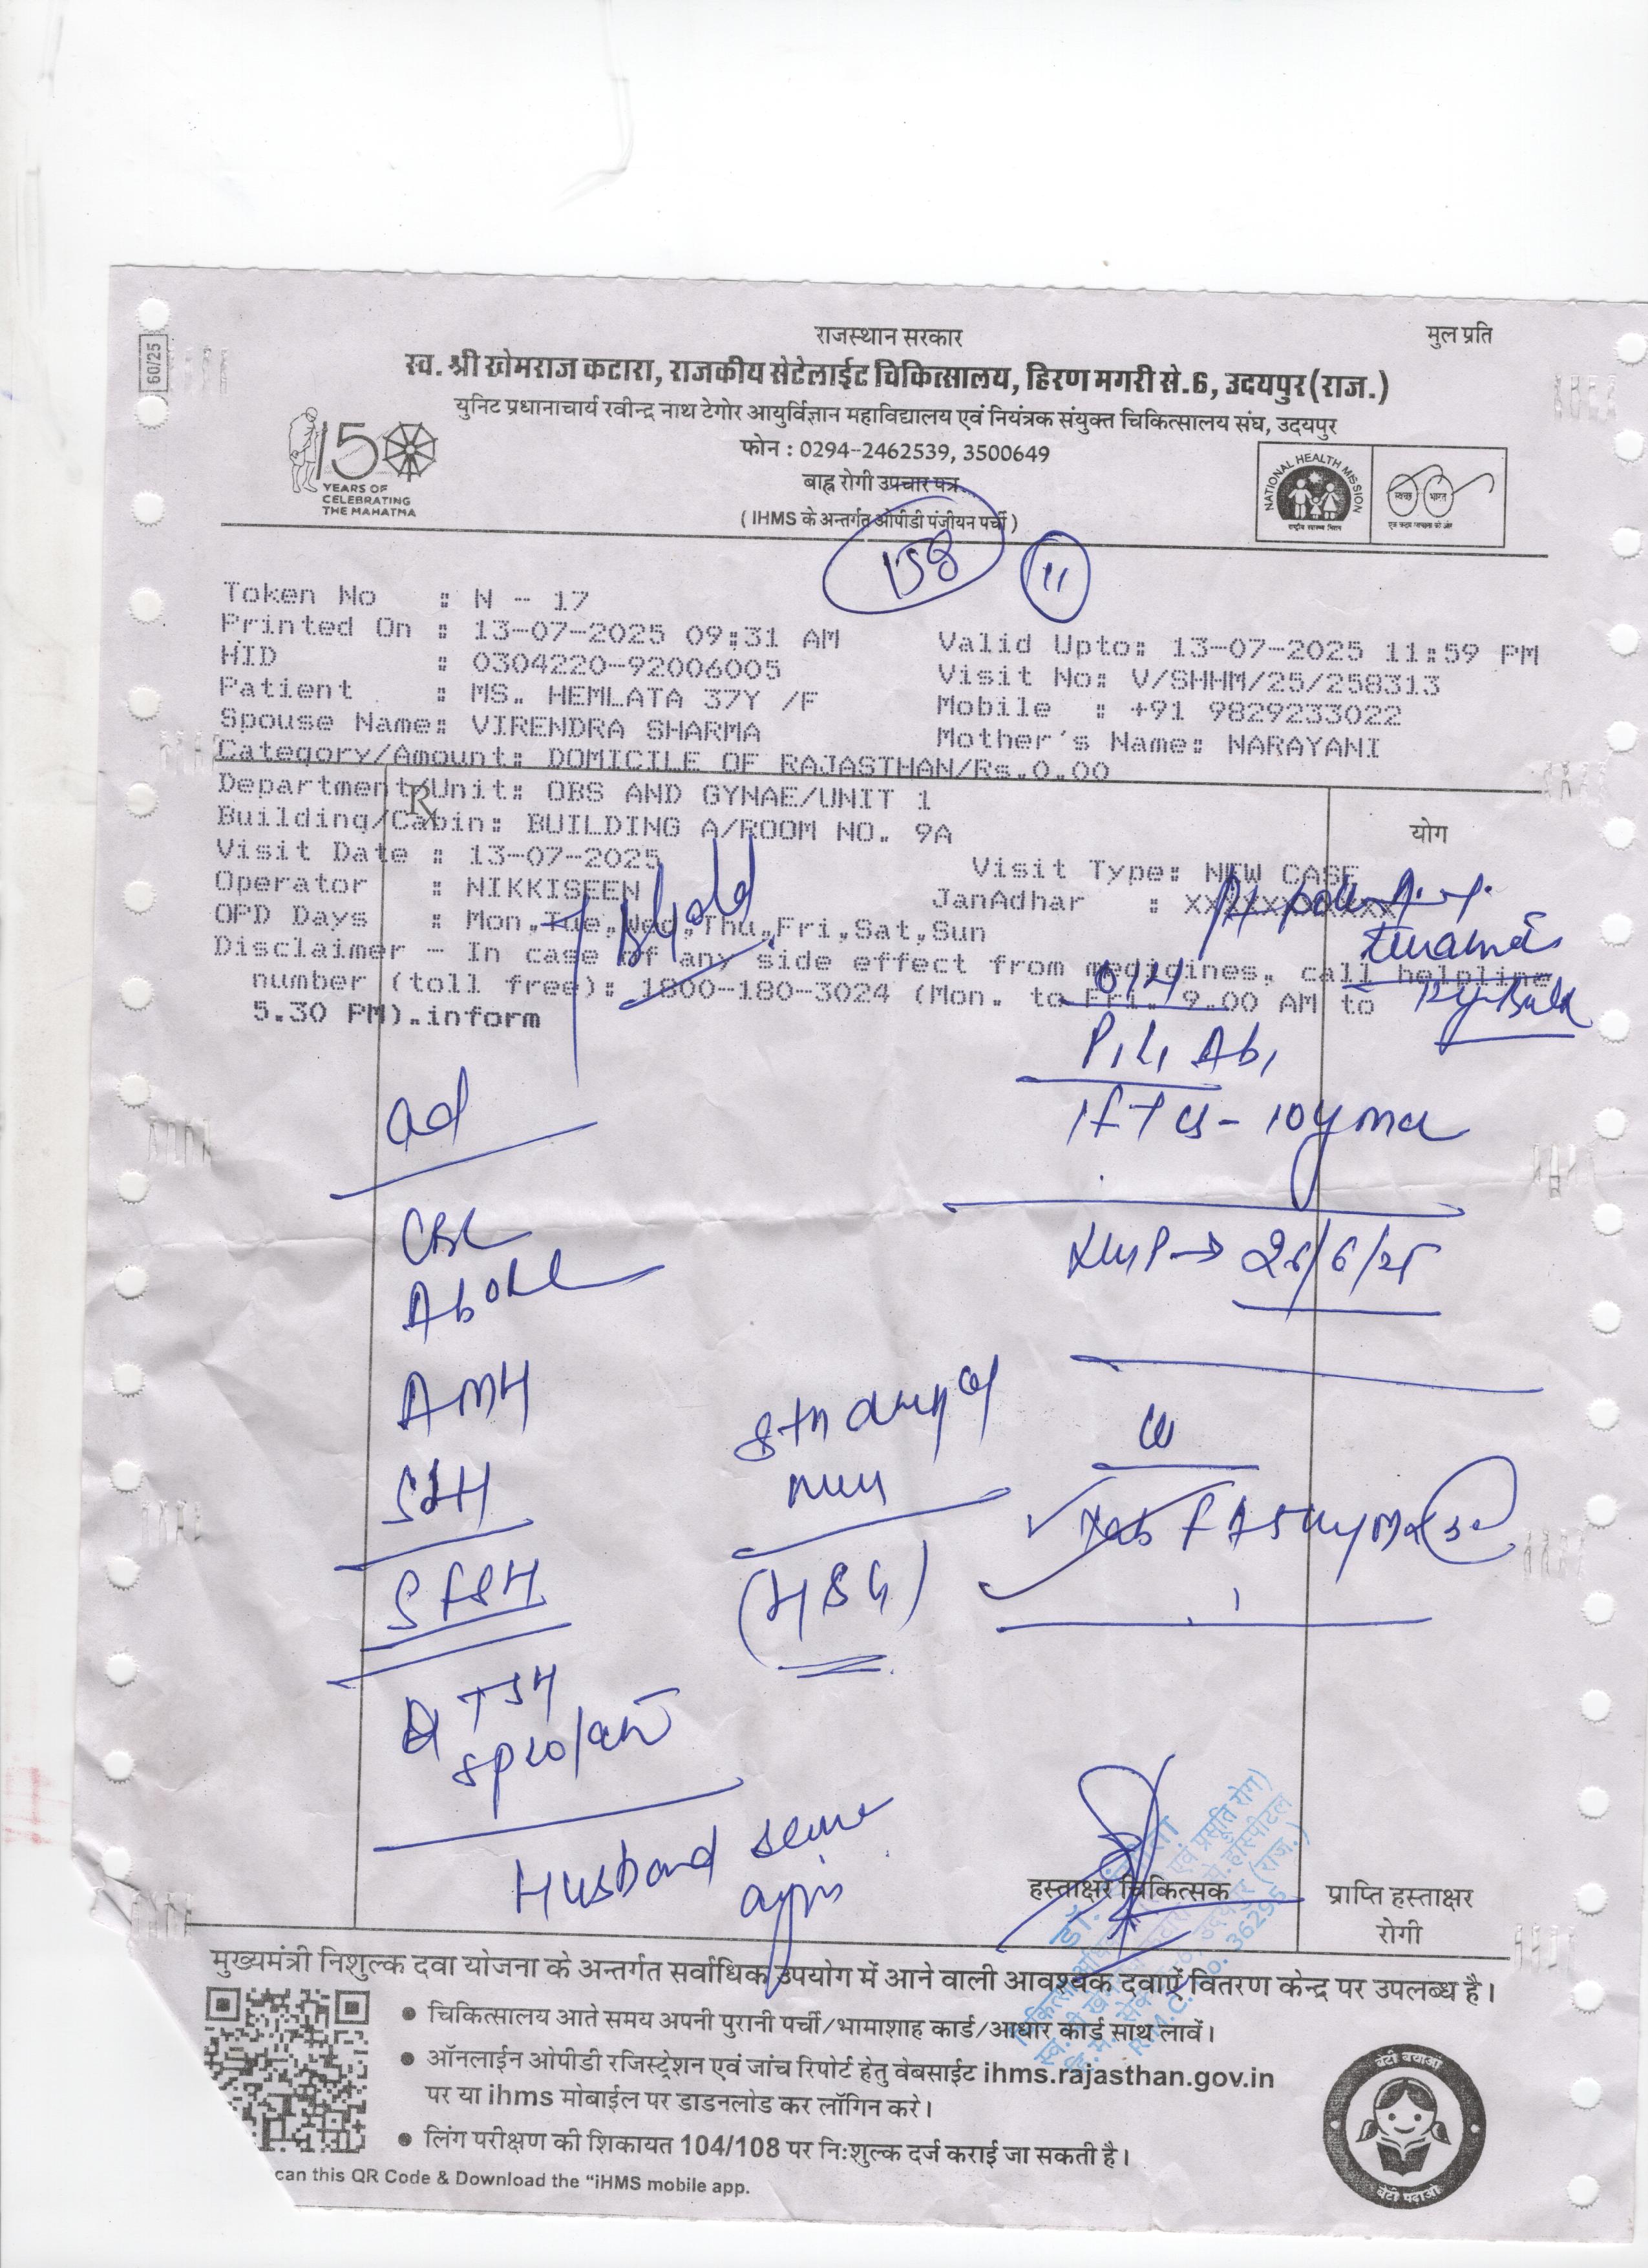 60/25
राजस्थान सरकार
मुल प्रति
स्व. श्री खेमराज कटारा, राजकीय सेटेलाईट चिकित्सालय, हिरण मगरी से.6, उदयपुर (राज.)
युनिट प्रधानाचार्य रवीन्द्र नाथ टेगोर आयुर्विज्ञान महाविद्यालय एवं नियंत्रक संयुक्त चिकित्सालय संघ, उदयपुर
फोन : 0294-2462539, 3500649
बाह्न रोगी उपचार पत्र
( IHMS के अन्तर्गत ओपीडी पंजीयन पर्ची )
150
YEARS OF
CELEBRATING
THE MAHATMA
NATIONAL HEALTH MISSION
स्वच्छ भारत
11
Token No : N - 17
Printed On : 13-07-2025 09:31 AM
Valid Upto: 13-07-2025 11:59 PM
HID : 0304220-92006005
Visit No: V/SHHM/25/258313
Patient : MS. HEMLATA 37Y /F
Mobile : +91 9829233022
Spouse Name: VIRENDRA SHARMA
Mother's Name: NARAYANI
Category/Amount: DOMICILE OF RAJASTHAN/Rs.0.00
Department/Unit: OBS AND GYNAE/UNIT 1
Building/Cabin: BUILDING A/ROOM NO. 9A
योग
Visit Date : 13-07-2025
Visit Type: NEW CASE
Operator : NIKKISEEN
JanAdhar :
OPD Days : Mon,Tue,Wed,Thu,Fri,Sat,Sun
Disclaimer - In case of any side effect from medicines, call helpline
number (toll free): 1800-180-3024 (Mon. to Fri. 9.00 AM to
5.30 PM).inform
O/H
P1L1 Ab1
ad
CBC
LMP → 26/6/25
AMH
S LH
S FSH
(HSG)
TSH
S prolactin
Husband semen
हस्ताक्षर चिकित्सक
प्राप्ति हस्ताक्षर
रोगी
मुख्यमंत्री निशुल्क दवा योजना के अन्तर्गत सर्वाधिक उपयोग में आने वाली आवश्यक दवाऐं वितरण केन्द्र पर उपलब्ध है।
● चिकित्सालय आते समय अपनी पुरानी पर्ची/भामाशाह कार्ड/आधार कार्ड साथ लावें।
● ऑनलाईन ओपीडी रजिस्ट्रेशन एवं जांच रिपोर्ट हेतु वेबसाईट ihms.rajasthan.gov.in
पर या ihms मोबाईल पर डाडनलोड कर लॉगिन करे।
● लिंग परीक्षण की शिकायत 104/108 पर नि:शुल्क दर्ज कराई जा सकती है।
can this QR Code & Download the "iHMS mobile app.
बेटी बचाओ
बेटी पढाओ